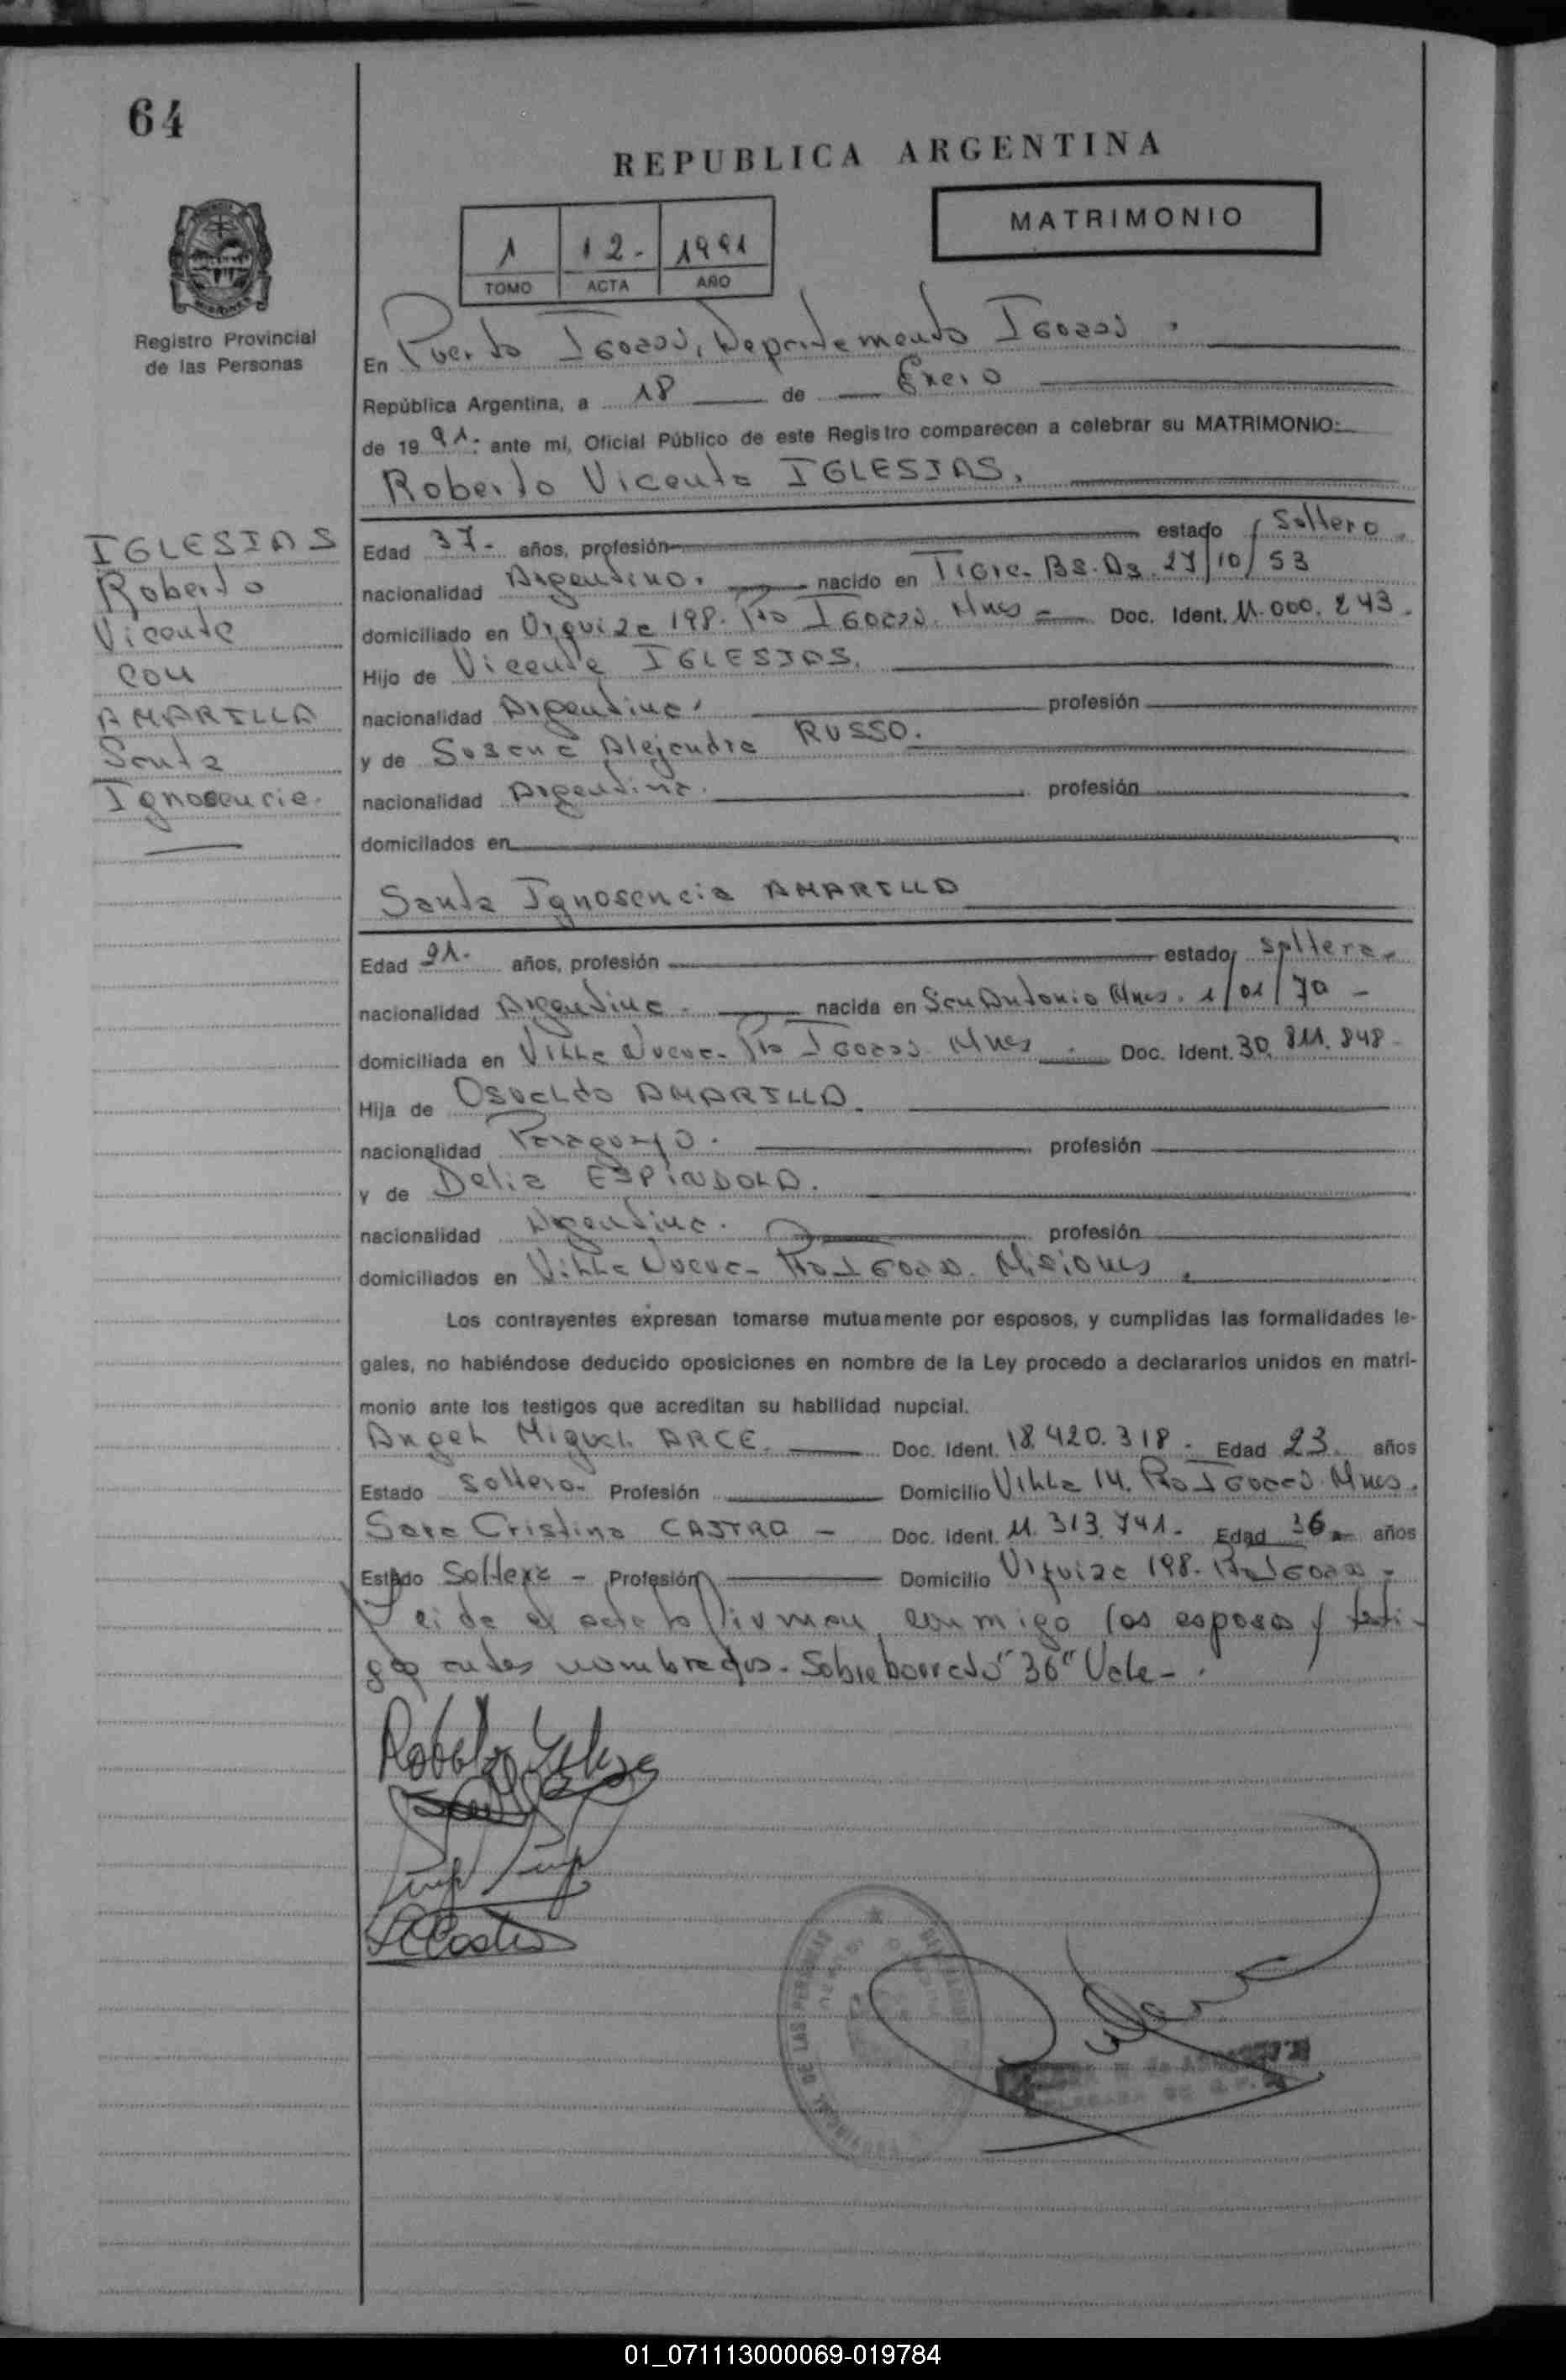 64
REPUBLICA ARGENTINA
MATRIMONIO
1 12- 1991
TOMO ACTA AÑO
Registro Provincial
de las Personas
En Puerto Iguazú, Departamento Iguazú.
República Argentina, a 18 de Enero
de 1991. ante mi, Oficial Público de este Registro comparecen a celebrar su MATRIMONIO:
Roberto Vicente IGLESIAS.
IGLESIAS
Roberto
Vicente
con
AMARILLA
Santa
Ignosencia.
Edad 37- años, profesión estado Soltero.
nacionalidad Argentino. nacido en Tigre. Bs. As. 27/10/53
domiciliado en Urquiza 198. Pto Iguazú. Mnes - Doc. Ident. 11.000.243.
Hijo de Vicente IGLESIAS.
nacionalidad Argentina. profesión
y de Susana Alejandra RUSSO.
nacionalidad Argentina. profesión
domiciliados en
Santa Ignosencia AMARILLA
Edad 21- años, profesión estado soltera.
nacionalidad Argentina - nacida en San Antonio Mnes. 1/01/70 -
domiciliada en Villa Nueva- Pto Iguazú. Mnes. Doc. Ident. 30.811.848-
Hija de Osvaldo AMARILLA.
nacionalidad Paraguayo. profesión
y de Delia ESPINDOLA.
nacionalidad Argentina. profesión
domiciliados en Villa Nueva- Pto Iguazú. Misiones.
Los contrayentes expresan tomarse mutuamente por esposos, y cumplidas las formalidades le-
gales, no habiéndose deducido oposiciones en nombre de la Ley procedo a declararlos unidos en matri-
monio ante los testigos que acreditan su habilidad nupcial.
Angel Miguel ARCE. Doc. Ident. 18.420.318. Edad 23. años
Estado Soltero. Profesión Domicilio Villa 14. Pto Iguazú. Mnes.
Sara Cristina CASTRO - Doc. Ident. 11.313.741. Edad 36 años
Estado Soltera - Profesión Domicilio Urquiza 198. Pto Iguazú -
Leída el acta la firman conmigo los esposos y testi-
gos antes nombrados. Sobreborrado "36" Vale-.
DE LAS PERSONAS
01_071113000069-019784